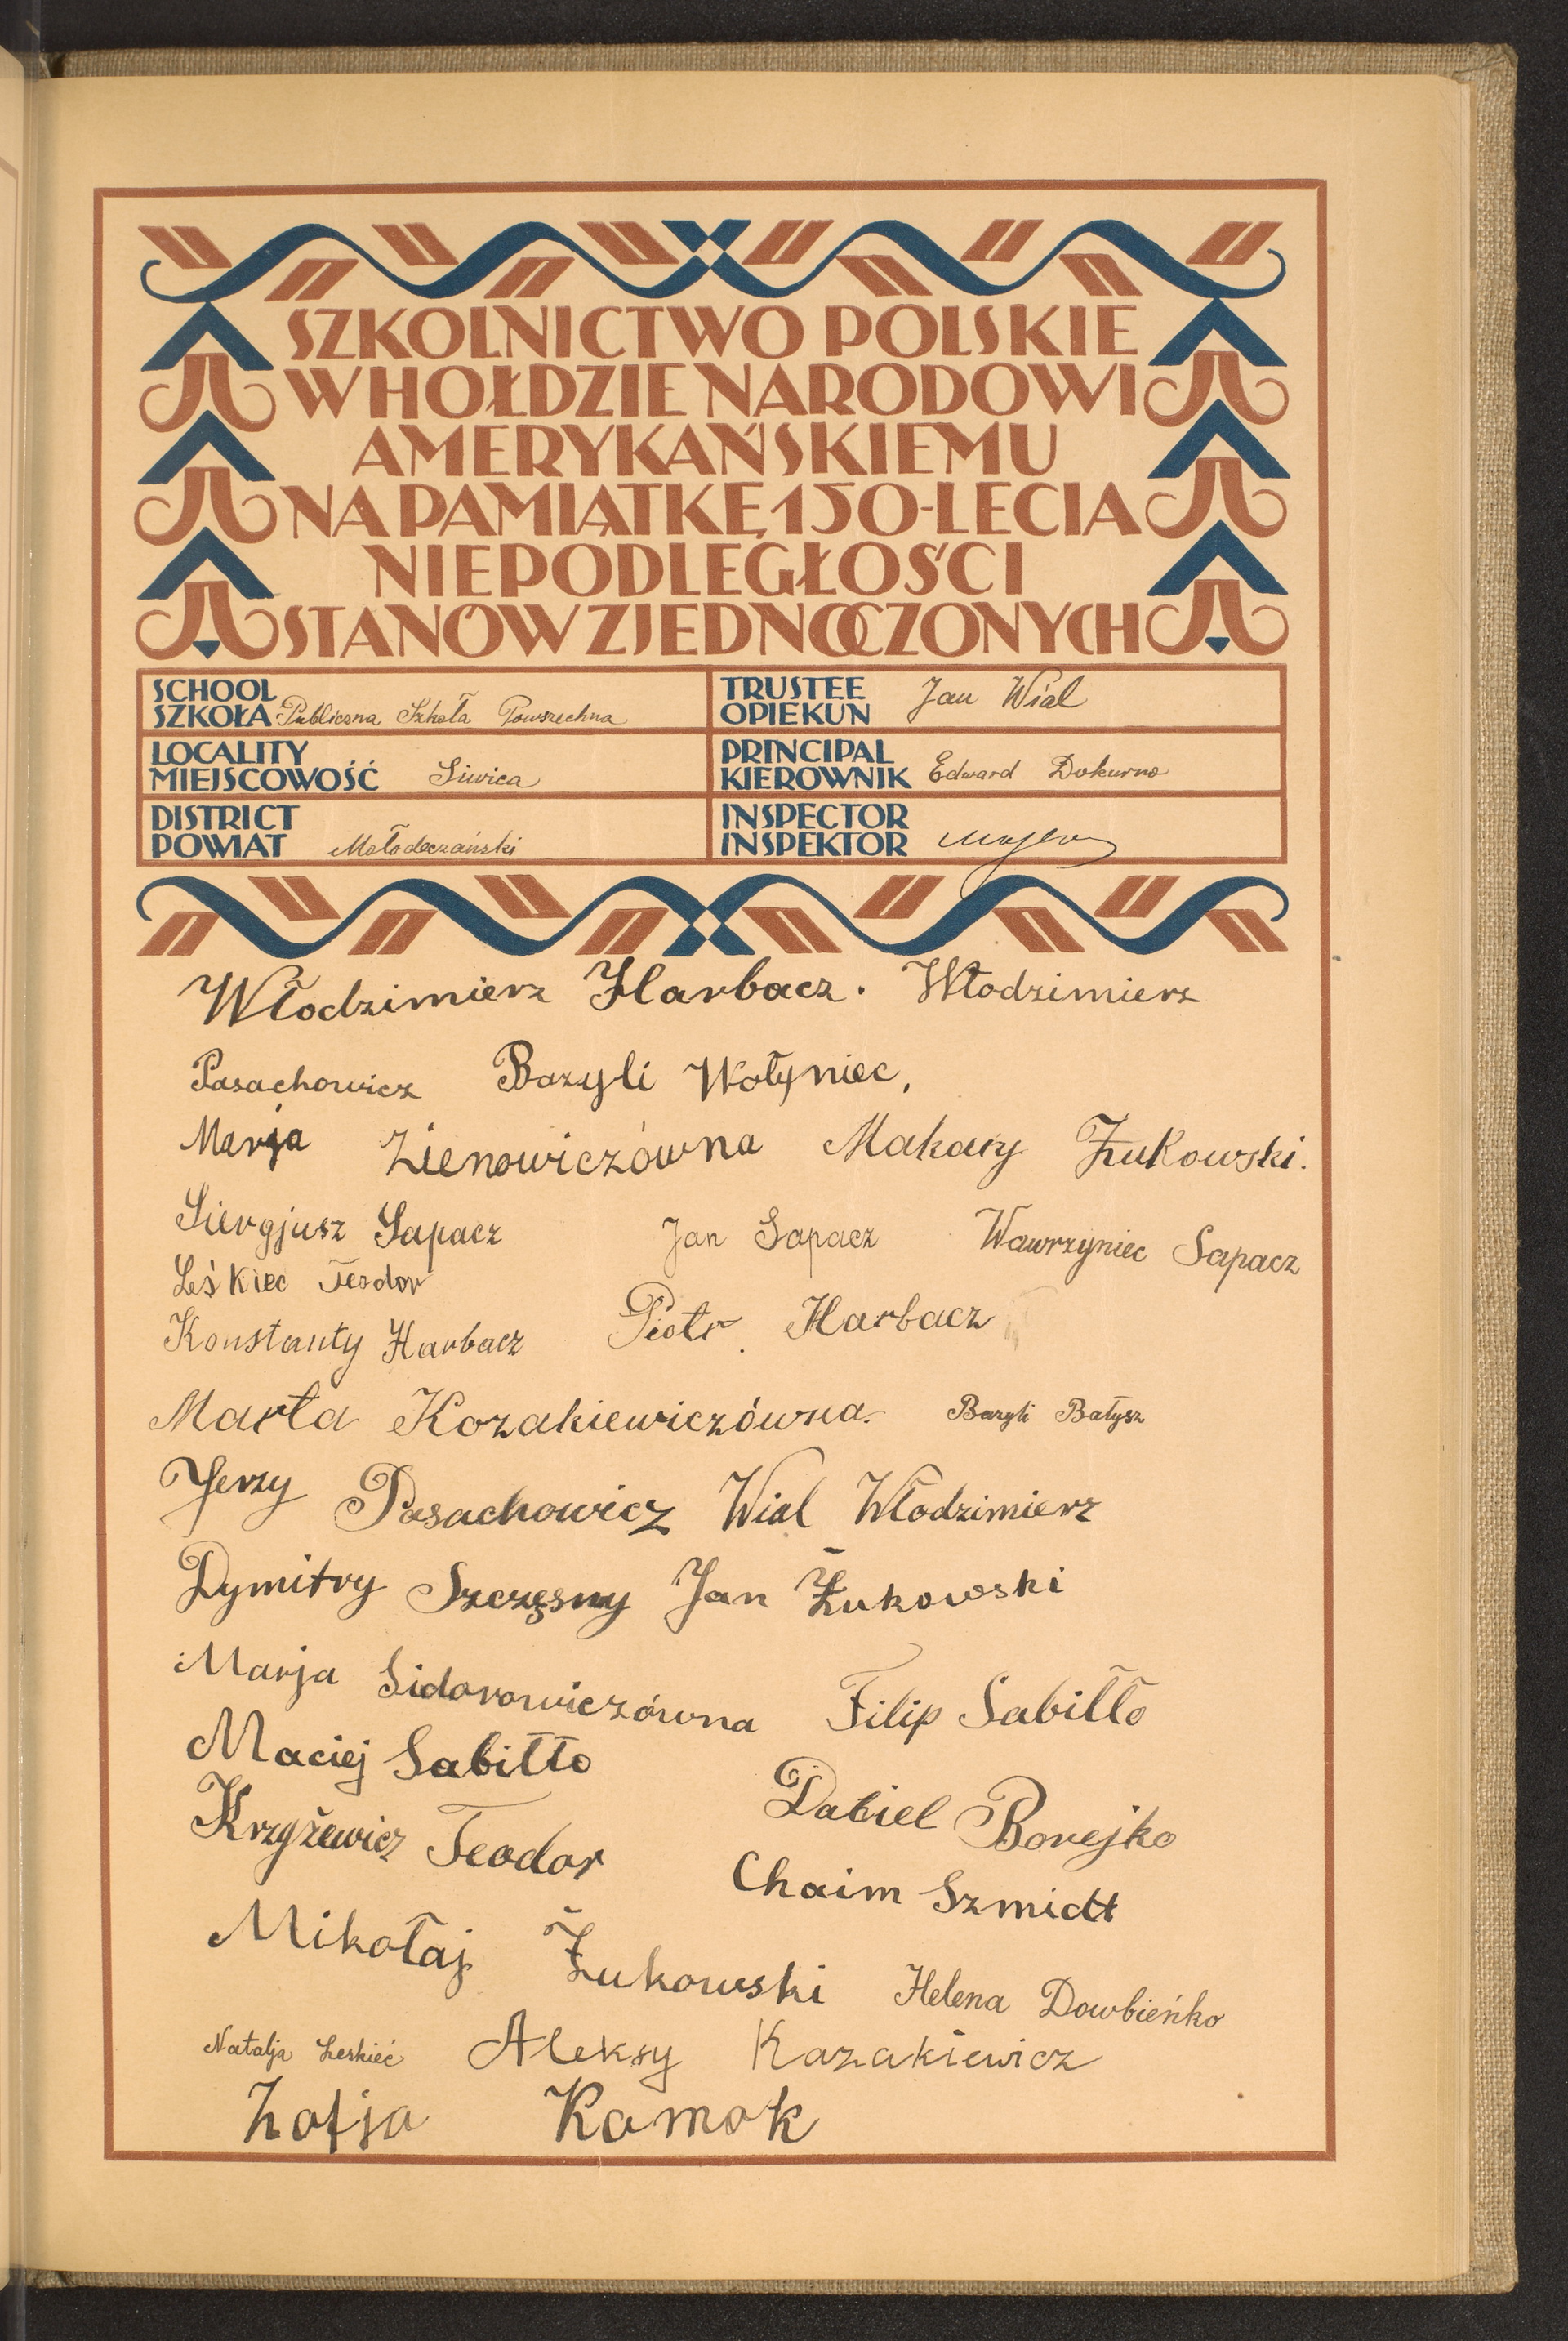 SZKOLNICTWO POLSKIE
W HOŁDZIE NARODOWI
AMERYKAŃSKIEMU
NA PAMIĄTKĘ 150-LECIA
NIEPODLEGŁOŚCI
STANÓW ZJEDNOCZONYCH
SCHOOL
SZKOŁA Publiczna Szkoła Powszechna
TRUSTEE
OPIEKUN Jan Wial
LOCALITY
MIEJSCOWOŚĆ Siwica
PRINCIPAL
KIEROWNIK Edward Dokurno
DISTRICT
POWIAT Mołodeczański
INSPECTOR
INSPEKTOR
Włodzimierz Harbacz. Włodzimierz
Pasachowicz Bazyli Wołyniec,
Marja Zienowiczówna Makary Żukowski.
Siergjusz Sapacz Jan Sapacz Wawrzyniec Sapacz
Leśkiec Teodor
Konstanty Harbacz Piotr Harbacz
Marta Kozakiewiczówna. Bazyli Bałysz
Jerzy Pasachowicz Wial Włodzimierz
Dymitry Szczęsny Jan Żukowski
Marja Sidorowiczówna Filip Sabiłło
Maciej Sabiłło
Dabiel Borejko
Krzyżewicz Teodor
Chaim Szmidt
Mikołaj Żukowski Helena Dowbieńko
Natalja Leskieć Aleksy Kazakiewicz
Zofja Komok